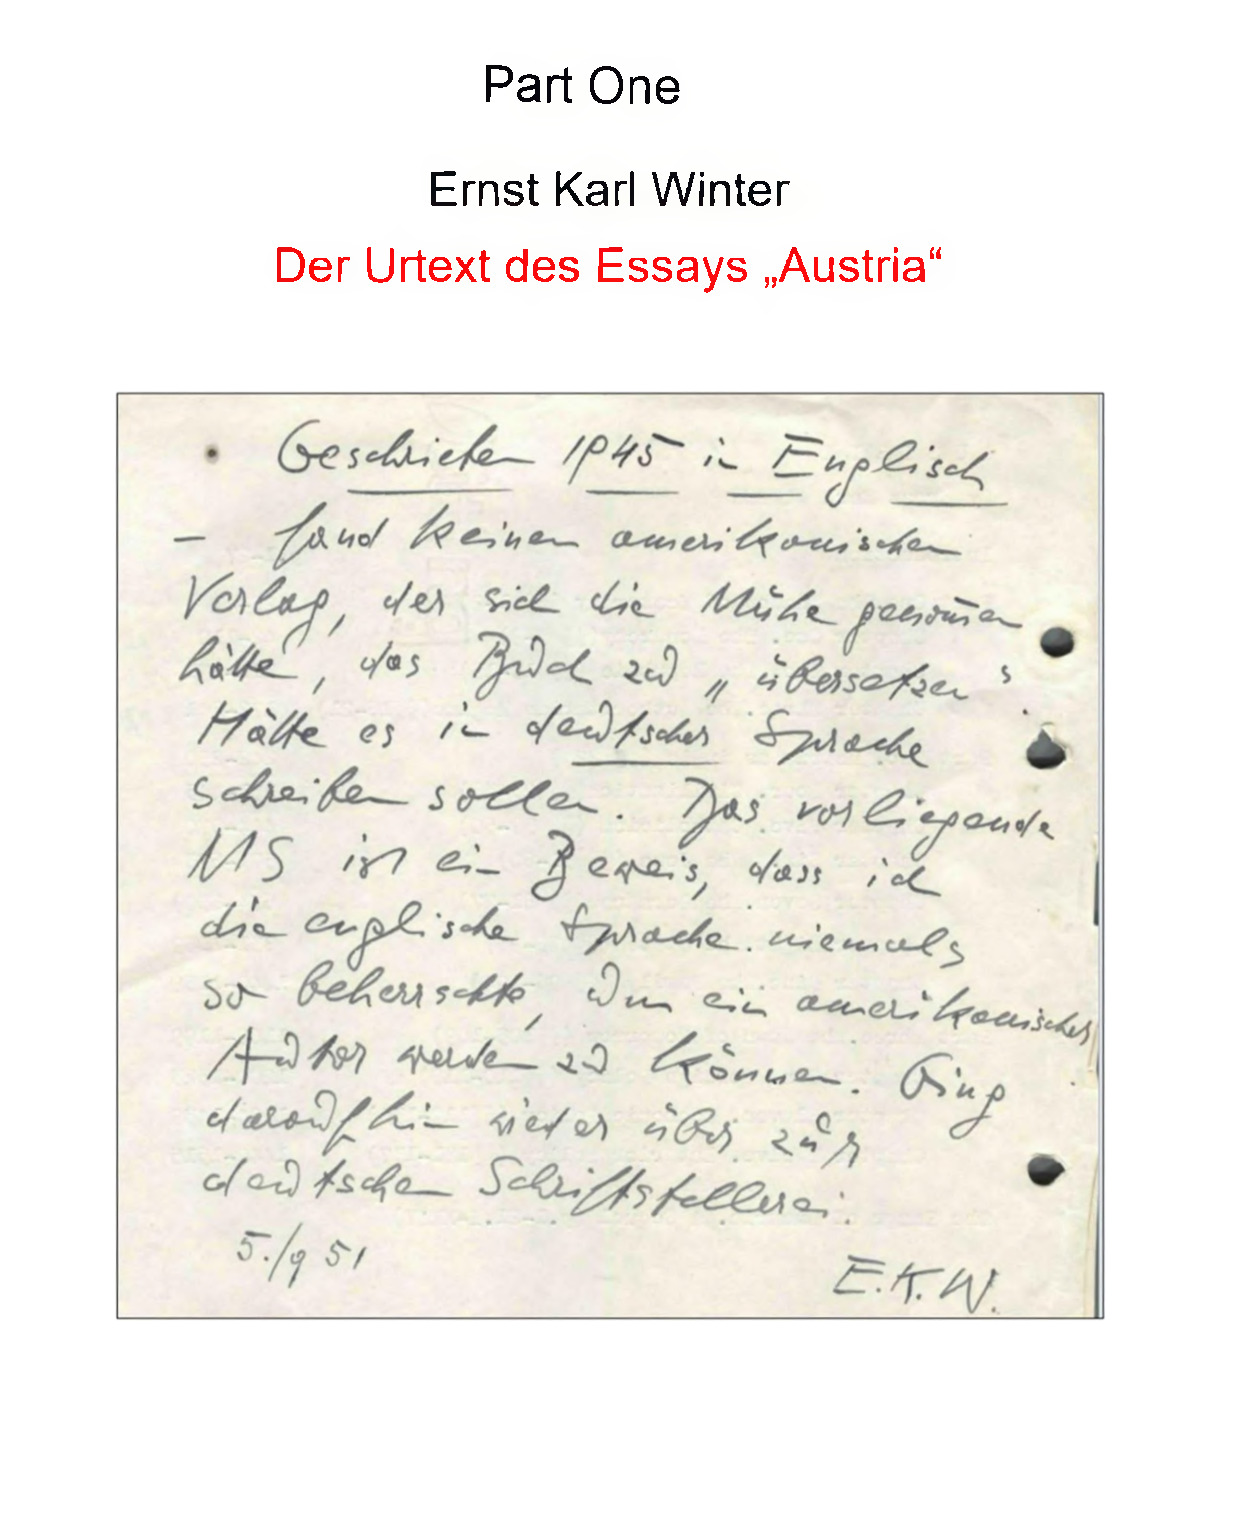 Part One
Ernst Karl Winter
Der Urtext des Essays „Austria“
Geschrieben 1945 in Englisch
– fand keinen amerikanischen
Verlag, der sich die Mühe genom̄en
hätte, das Buch zu „übersetzen“.
Hätte es in deutscher Sprache
schreiben sollen. Das vorliegende
MS ist ein Beweis, dass ich
die englische Sprache niemals
so beherrschte, um ein amerikanischer
Autor werden zu können. Ging
daraufhin wieder über zur
deutschen Schriftstellerei.
5./9 51
E.K.W.